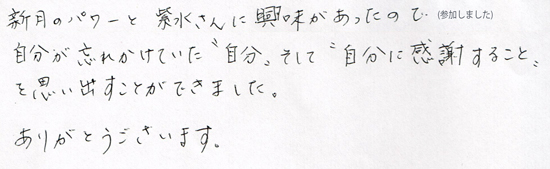 新月のパワーと 紫水さんに興味があったので (参加しました)
自分が忘れかけていた〝自分〟そして〝自分に感謝すること〟
を思い出すことができました。
ありがとうございます。